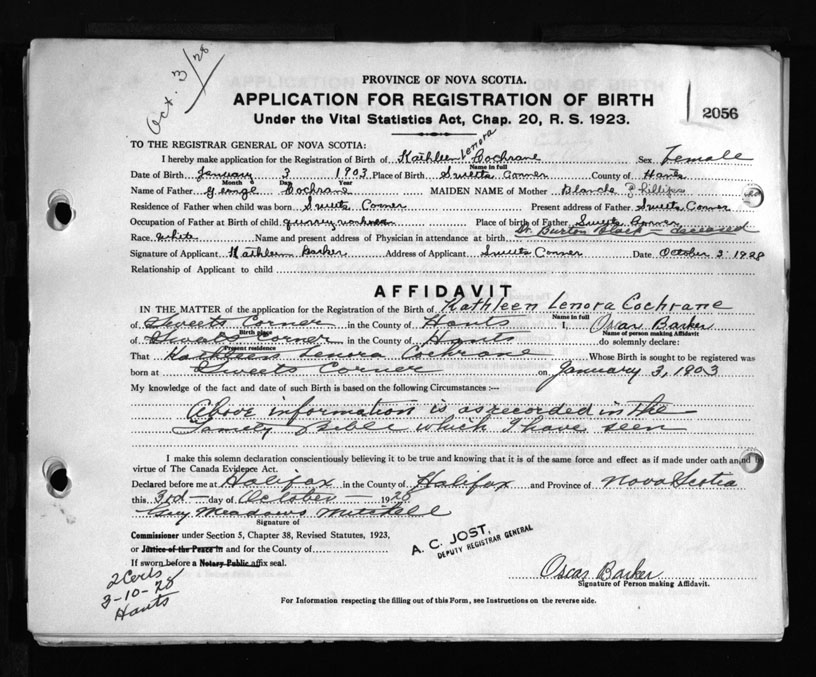 Oct. 3/28
PROVINCE OF NOVA SCOTIA.
APPLICATION FOR REGISTRATION OF BIRTH
2056
Under the Vital Statistics Act, Chap. 20, R. S. 1923.
TO THE REGISTRAR GENERAL OF NOVA SCOTIA:
I hereby make application for the Registration of Birth of Kathleen Lenora Cochrane Sex Female
Name in full
Date of Birth January 3 1903 Place of Birth Sweets Corner County of Hants
Month Day Year
Name of Father George Cochrane MAIDEN NAME of Mother Blanche Phillips
Residence of Father when child was born Sweets Corner Present address of Father Sweets Corner
Occupation of Father at Birth of child Place of birth of Father Sweets Corner
Race white Name and present address of Physician in attendance at birth Dr Burton Black - deceased
Signature of Applicant Kathleen Barker Address of Applicant Sweets Corner Date October 3 1928
Relationship of Applicant to child
AFFIDAVIT
IN THE MATTER of the application for the Registration of the Birth of Kathleen Lenora Cochrane
Name in full
of Sweets Corner in the County of Hants I, Oscar Barker
Birth place Name of person making Affidavit
of Sweets Corner in the County of Hants do solemnly declare:
Present residence
That Kathleen Lenora Cochrane Whose Birth is sought to be registered was
born at Sweets Corner on January 3, 1903
My knowledge of the fact and date of such Birth is based on the following Circumstances :—
Above information is as recorded in the
Family Bible which I have seen
I make this solemn declaration conscientiously believing it to be true and knowing that it is of the same force and effect as if made under oath and in
virtue of The Canada Evidence Act.
Declared before me at Halifax in the County of Halifax and Province of Nova Scotia
this 3rd day of October 1928
Guy Meadows Mitchell
Signature of
Commissioner under Section 5, Chapter 38, Revised Statutes, 1923,
or Justice of the Peace in and for the County of
If sworn before a Notary Public affix seal.
A. C. JOST,
DEPUTY REGISTRAR GENERAL
Oscar Barker
Signature of Person making Affidavit.
2 Certs
3-10-28
Hants
For Information respecting the filling out of this Form, see Instructions on the reverse side.